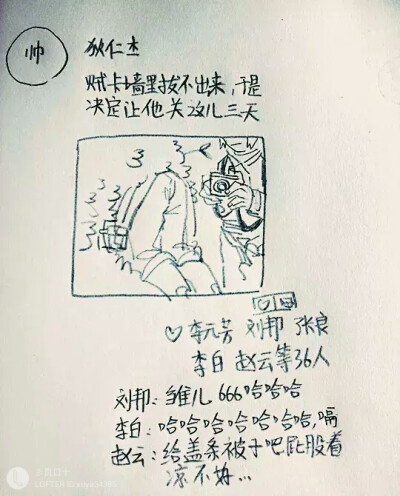 帅 狄仁杰
贼卡墙里拔不出来,于是
决定让他关这儿三天
♡李元芳 刘邦 张良
李白 赵云等36人
刘邦:雏儿 666哈哈哈
李白:哈哈哈哈哈哈哈哈,嗝
赵云:给盖条被子吧屁股着
凉不好...